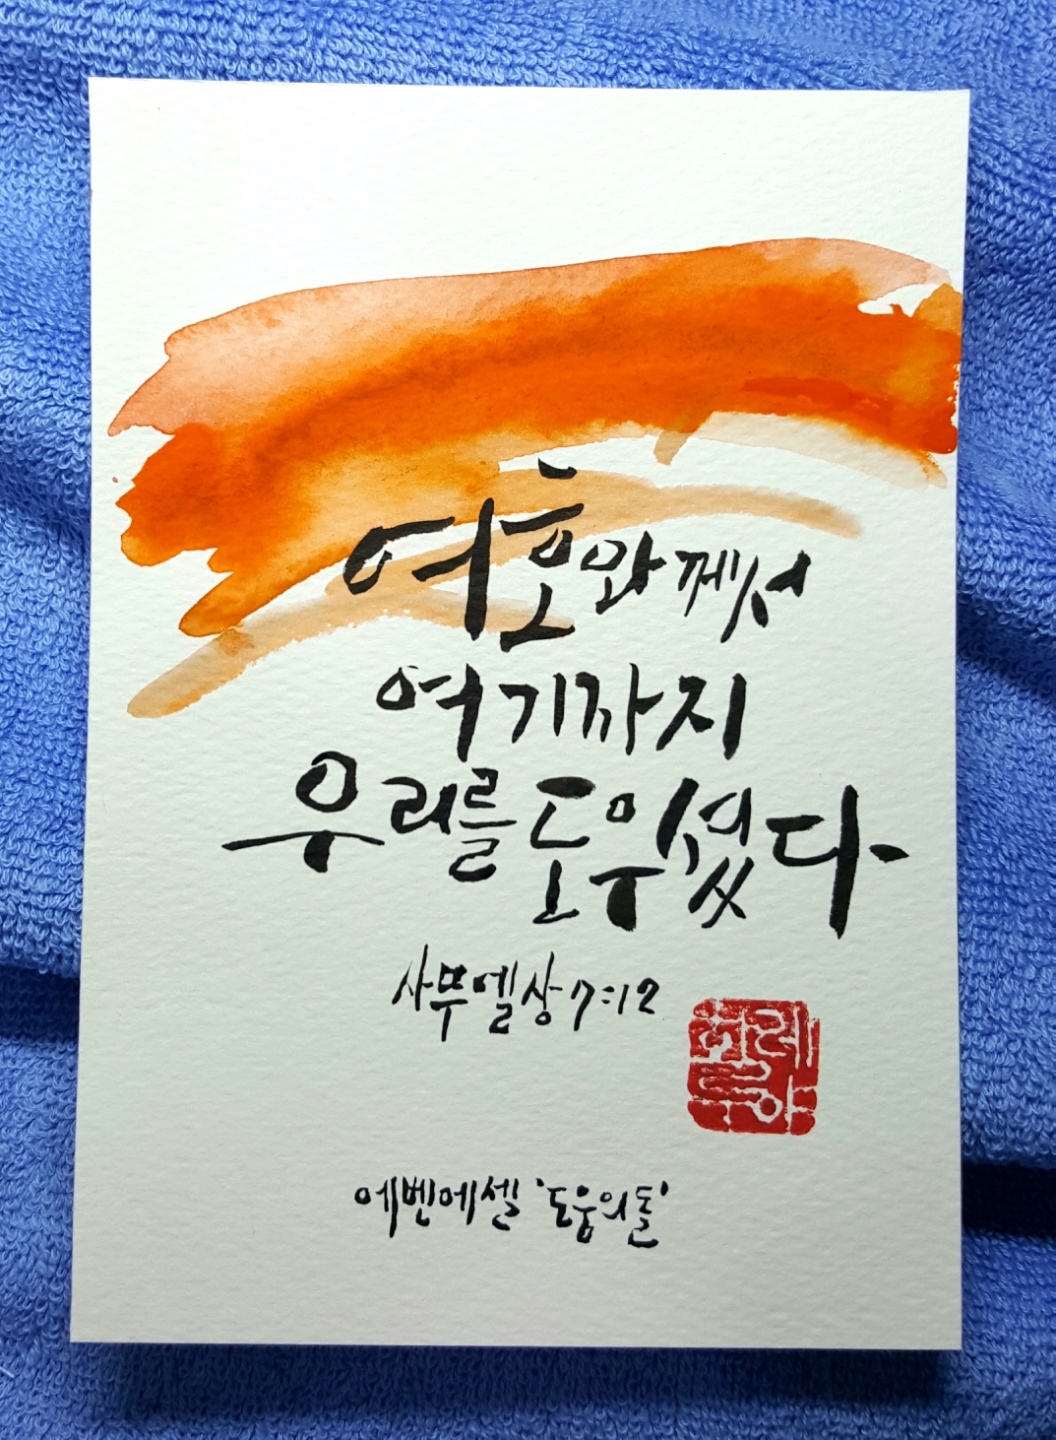 여호와께서
여기까지
우리를 도우셨다
사무엘상 7:12
할렐
루야
에벤에셀 '도움의 돌'